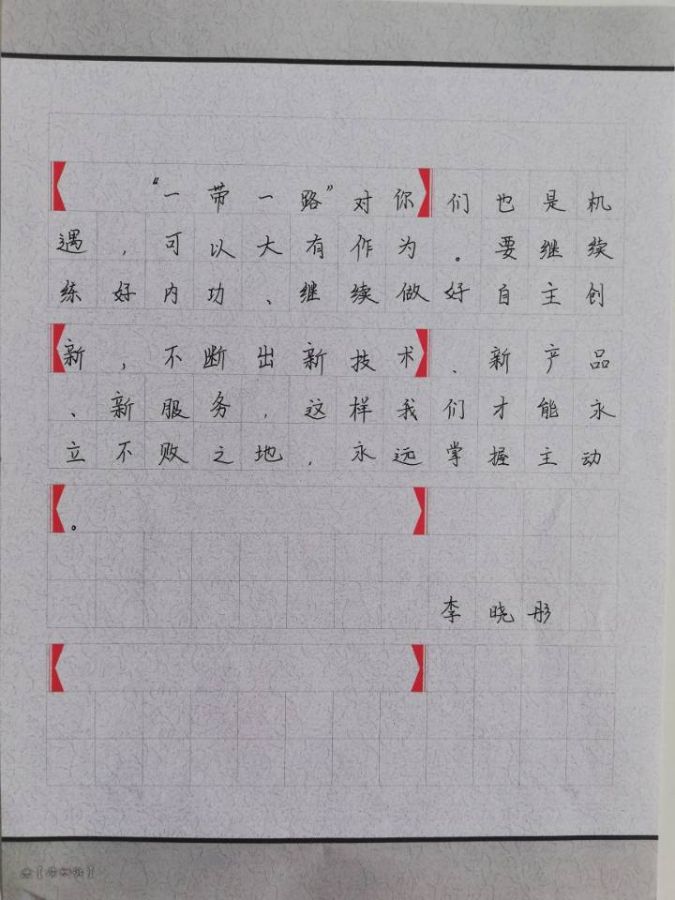 “一带一路”对你们也是机
遇，可以大有作为。要继续
练好内功、继续做好自主创
新，不断出新技术、新产品
、新服务，这样我们才能永
立不败之地，永远掌握主动
。
李晓彤